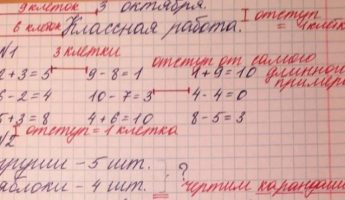 9 клеток 3 октября. отступ
6 клеток Классная работа. = 1 клетка
№1 3 клетки отступ от самого
2+3=5 9-8=1 1+9=10 длинного
6-2=4 10-7=3 4-4=0 примера
5+3=8 4+6=10 8-5=3
№2 отступ = 1 клетка
груши - 5 шт. ?
яблоки - 4 шт. чертим карандашом